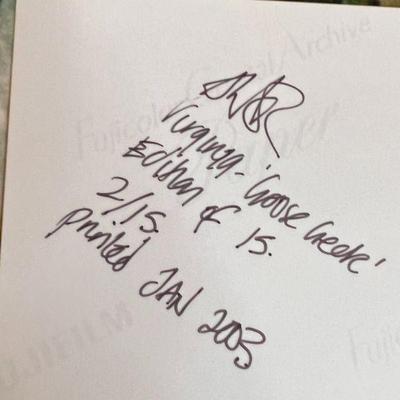 Virginia - 'Goose Creek'
Edition of 15.
2/15.
printed JAN 2003
Fujicolor Crystal Archive
Paper
FUJIFILM
Fujic